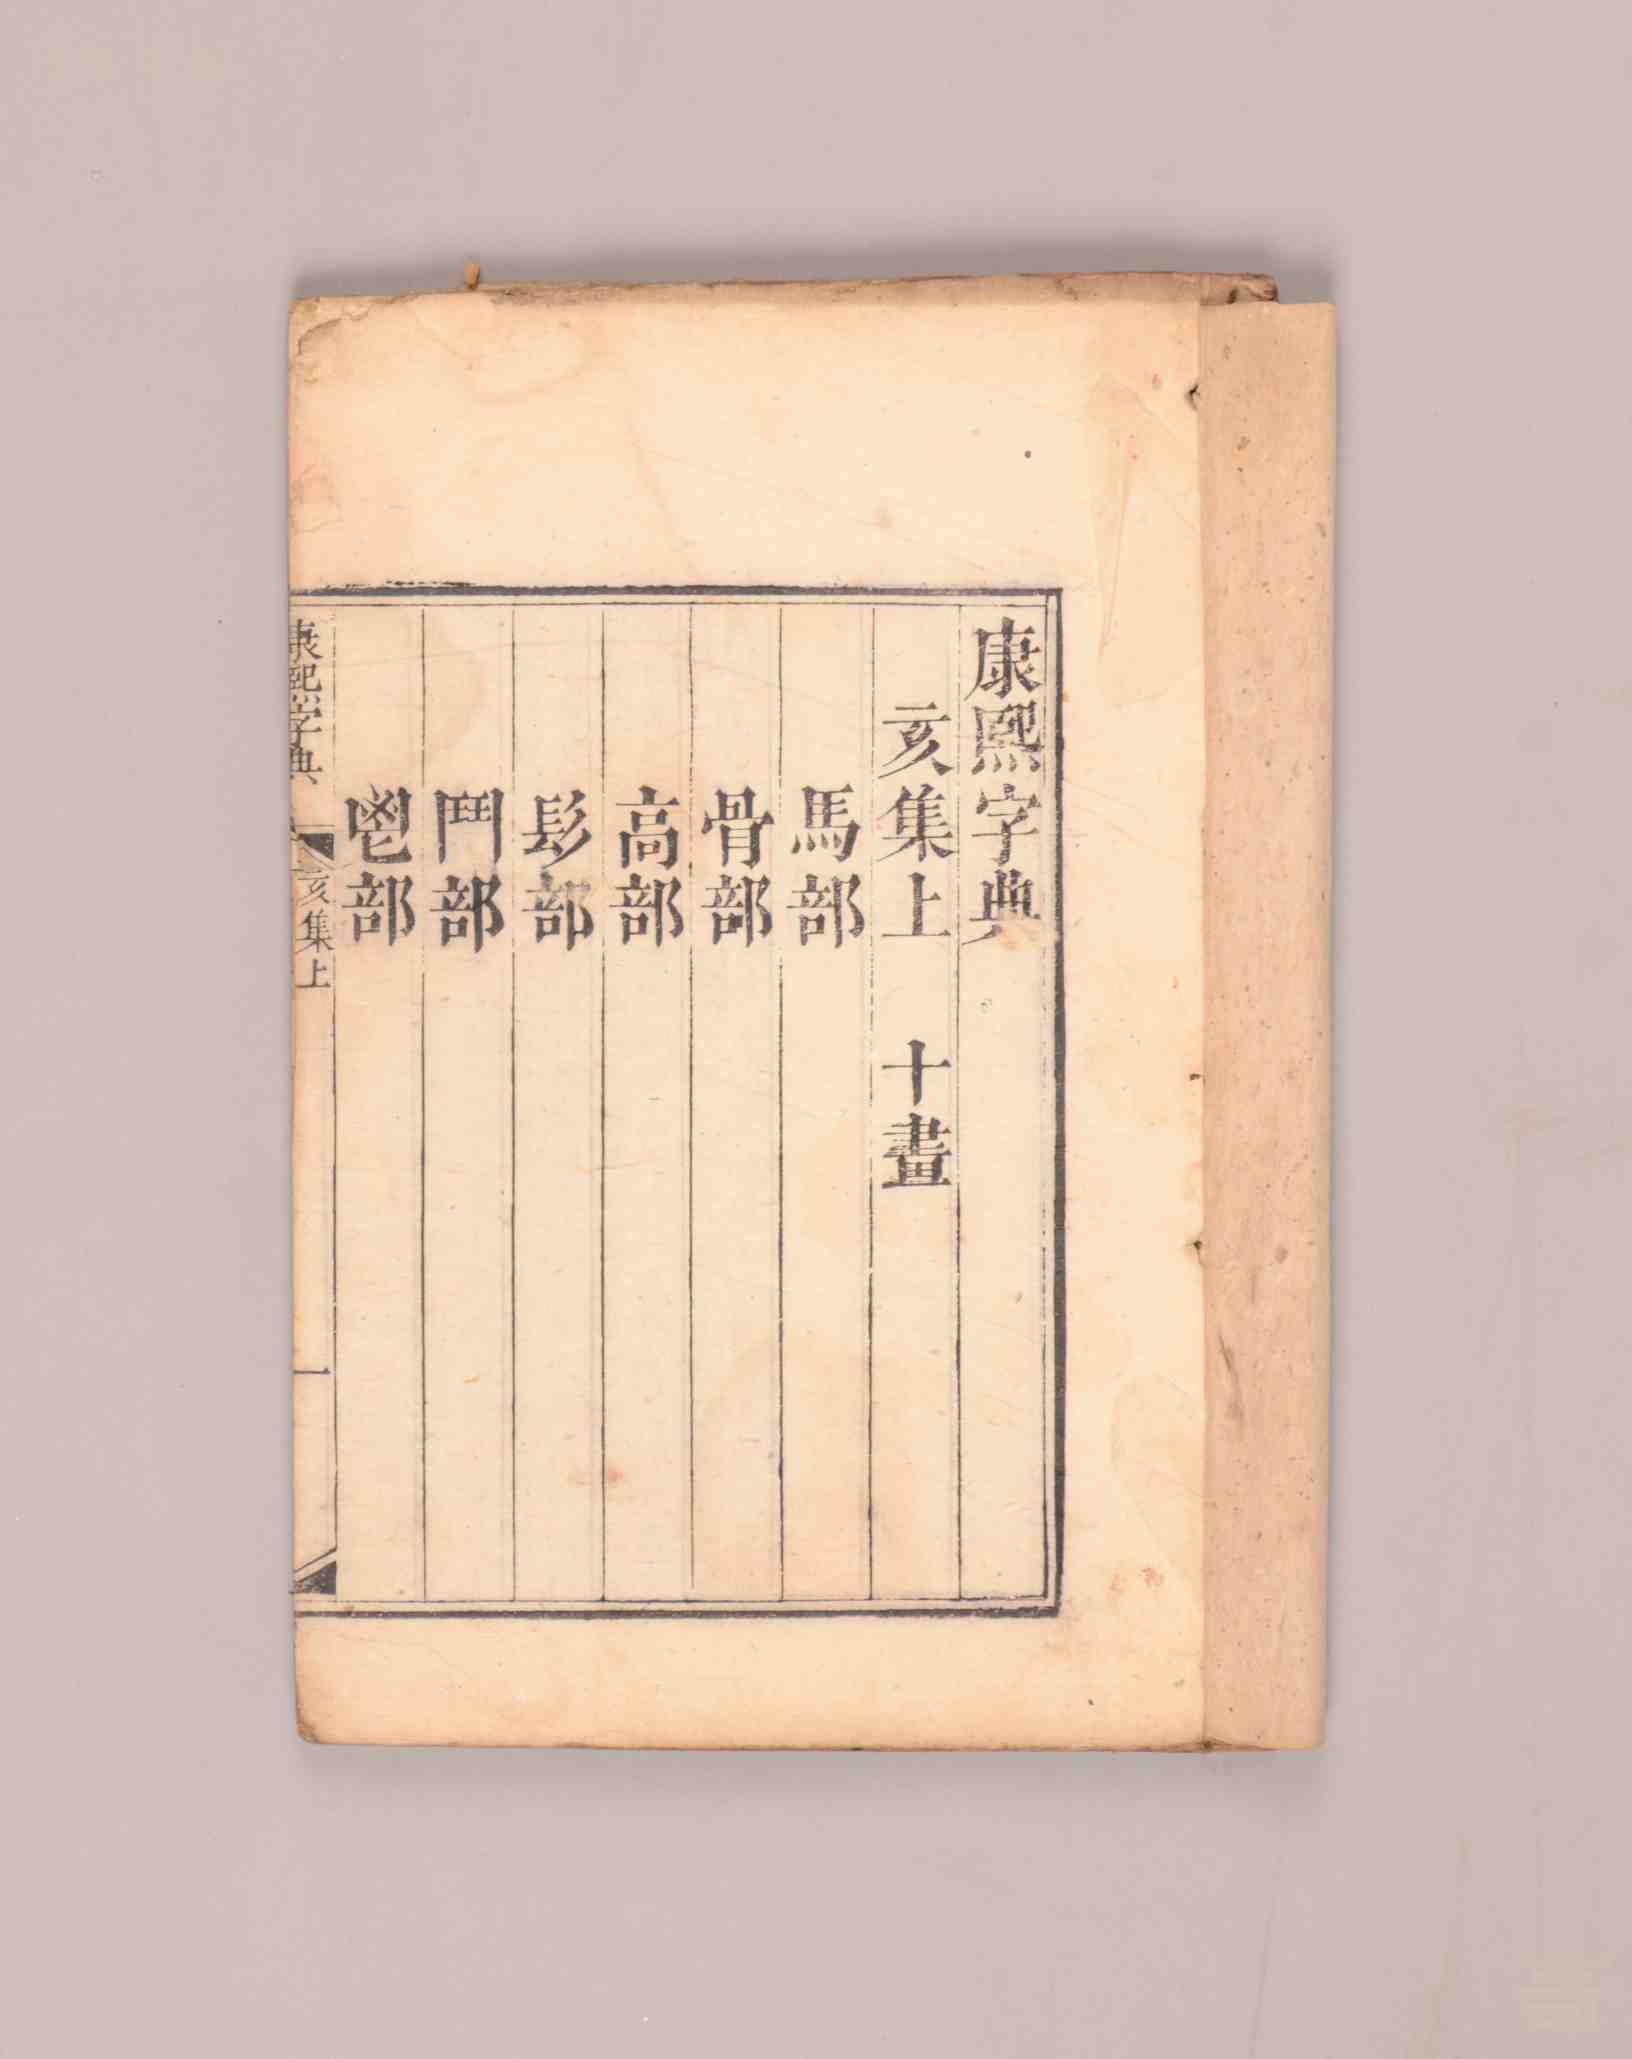 康熙字典
亥集上　十畫
馬部
骨部
高部
髟部
鬥部
鬯部
康熙字典
亥集上
一